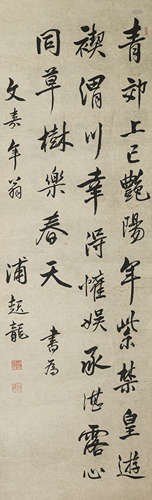 青郊上巳艷陽年紫禁皇遊
禊渭川幸得懽娛承湛露心
同草樹樂春天　書為
文嘉年翁
浦起龍